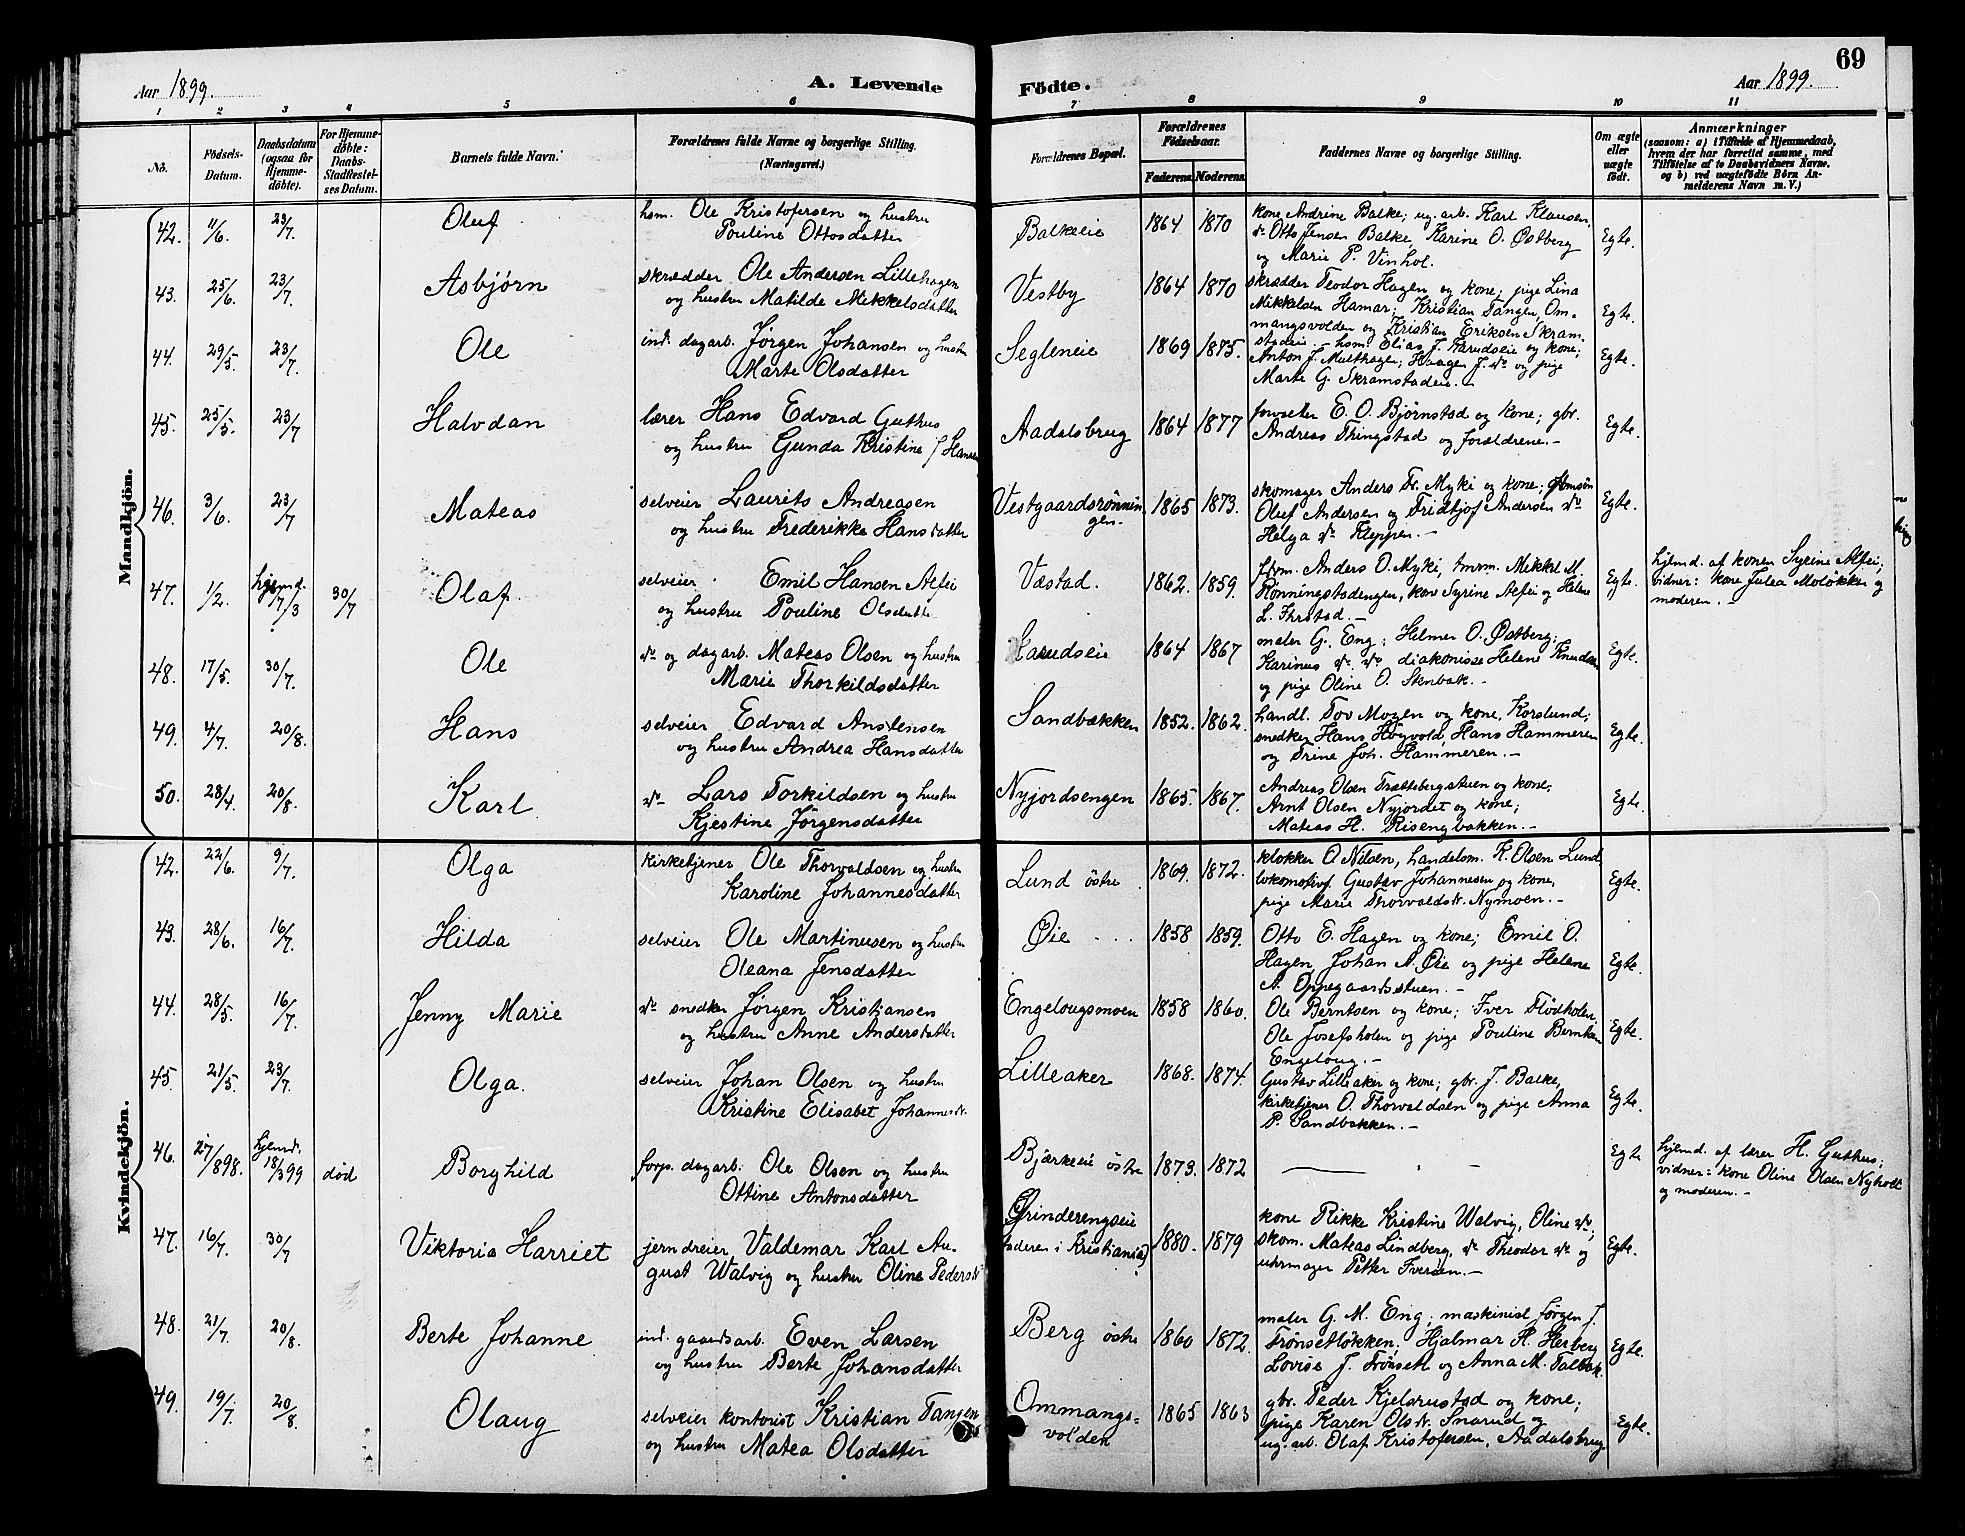 69
Aar 1899.
A. Levende Fødte.
Aar 1899.
1 2 3 4 5 6 7 8 9 10 11
No.
Fødsels-Datum.
Daabsdatum (ogsaa for Hjemme-døbte).
For Hjemme-døbte: Daabs-Stadfæstel-ses Datum.
Barnets fulde Navn.
Forældrenes fulde Navne og borgerlige Stilling.
(Næringsvei.)
Forældrenes Bopæl.
Forældrenes Fødselsaar.
Faderens. Moderens.
Faddernes Navne og borgerlige Stilling.
Om ægte eller uægte født.
Anmærkninger
(saasom: a) i Tilfælde af Hjemmedaab,
hvem der har forrettet samme, med
Tilføielse af to Daabsvidners Navne,
og b) ved uægtefødte Børn An-
melderens Navn m. V.)
Mandkjøn.
42. 11/6. 23/7. Oluf
hsm. Ole Kristofersen og hustru
Pouline Ottosdatter
Balkeeie 1864 1870
kone Andrine Balke; ug. arb. Karl Klausen,
do Otto Jensen Balke, Karine O. Østberg
og Marie P. Vinhol.
Egte.
43. 25/6. 23/7. Asbjørn
skrædder Ole Andersen Lillehagen
og hustru Matilde Mikkelsdatter
Vestby 1864 1870
skrædder Teodor Hagen og kone; pige Lina
Mikkelsen Hamar; Kristian Tangen, Om-
mangsvolden og Kristian Eriksen Skram-
stadeie.
Egte.
44. 29/5. 23/7. Ole
ind. dagarb. Jørgen Johansen og hustru
Marte Olsdatter
Segleneie 1869 1875.
hsm. Elias J. Farudseie og kone;
Anton J. Malthagen; Haagen J. do og pige
Marte G. Skramstadeie.
Egte.
45. 25/5. 23/7 Halvdan
lærer Hans Edvard Guthus
og hustru Gunda Kristine f. Hansen
Aadalsbrug 1864 1877
forvalter E. O. Bjørnstad og kone; gbr.
Andreas Thingstad og forældrene.
Egte.
46. 3/6. 23/7 Mateas
selveier Laurits Andreasen
og hustru Frederikke Hansdatter
Vestgaardsrønnin-
gen. 1865 1873.
skomager Anders Fr. Myki og kone;
Oluf Andersen og Fridtjof Andersen do
Helga do Kleppen.
Egte.
47. 1/2. hjemd. 7/3 30/7 Olaf.
selveier Emil Hansen Alfei
og hustru Pouline Olsdatter
Væstad. 1862. 1859.
Anders O. Myki, Mikkel M.
Rønningstadengen, kone Syrine Alfei og Helene
L. Ihrstad.
Egte.
hjemd. af konen Syrine Alfei;
vidner: kone Julea Moløkken og
moderen.
48. 17/5. 30/7. Ole
do og dagarb. Mateas Olsen og hustru
Marie Thorkildsdatter
Farudseie 1864 1867
maler G. Eng; Helmer O. Østberg;
Karinus do. do diakonisse Helene Knudsen
og pige Oline O. Stenbæk.
Egte.
49. 4/7. 20/8. Hans
selveier Edvard Anstensen
og hustru Andrea Hansdatter
Sandbækken 1852. 1862.
handl. Tov Mogen og kone, Korslund;
snedker Hans Høyvold, Hans Hammeren
og Trine Joh. Hammeren.
Egte.
50. 28/4. 20/8. Karl.
do Lars Torkildsen og hustru
Kjestine Jørgensdatter
Nyjordsengen 1865. 1867.
Andreas Olsen Trættebergstuen og kone;
Arnt Olsen Nyjordet og kone;
Mateas H. Risengbakken.
Egte.
Kvindekjøn.
42. 22/6. 9/7. Olga
kirketjener Ole Thorvaldsen og hustru
Karoline Johannesdatter
Lund østre 1869. 1872.
klokker O. Nilsen, handelsm. K. Olsen Lund
lokomotivf. Gustav Johannesen og kone,
pige Marie Thorvaldsdtr. Nymoen.
Egte.
43. 28/6. 16/7. Hilda
selveier Ole Martinusen og hustru
Oleana Jensdatter
Øie 1858 1859.
Otto E. Hagen og kone; Emil O.
Hagen, Johan N. Øie og pige Helene
A. Oppegaardsstuen.
Egte.
44. 28/5. 16/7. Jenny Marie
do snedker Jørgen Kristiansen
og hustru Anne Andersdatter
Engelougsmoen 1858 1860.
Ole Berntsen og kone; Iver Flodholen,
Ole Josefsholen og pige Pouline Berntsen
Engeloug.
Egte.
45. 21/5. 23/7. Olga.
selveier Johan Olsen og hustru
Kristine Elisabet Johannesdtr.
Lilleaker 1868. 1874.
Gustav Lilleaker og kone; gbr. J. Balke,
kirketjener O. Thorvaldsen og pige Anna
P. Sandbakken.
Egte.
46. 27/8 98. hjemd. 18/3 99 død Borghild
forp. dagarb. Ole Olsen og hustru
Ottine Antonsdatter
Bjærkeeie østre 1873. 1872
Egte
hjemd. af lærer H. Guthus;
vidner: kone Oline Olsen Nyholt
og moderen.
47. 16/7. 30/7 Viktoria Harriet
jerndreier Valdemar Karl Au-
gust Walvig og hustru Oline Pedersdtr
Grinderengseie
(faderen i Kristiania) 1880. 1879
kone Rikke Kristine Walvig, Oline do;
skom. Mateas Lindberg, do Theodor do og
uhrmager Petter Iversen.
Egte.
48. 21/7. 20/8. Berte Johanne
ind. gaardsarb. Even Larsen
og hustru Berte Johansdatter
Berg østre 1860 1872.
maler G. M. Eng; maskinist Jørgen J.
Trønsetløkken; Hjalmar H. Herberg
Lovise J. Trønset og Anna M. Falbæk.
Egte.
49. 19/7. 20/8 Olaug
selveier kontorist Kristian Tangen
og hustru Matea Olsdatter
Ommangs-
volden 1865 1863
gbr. Peder Kjelsrustad og kone;
pige Karen Olsdtr. Snarud og
ug. arb. Olaf Kristofersen, Aadalsbrug.
Egte.